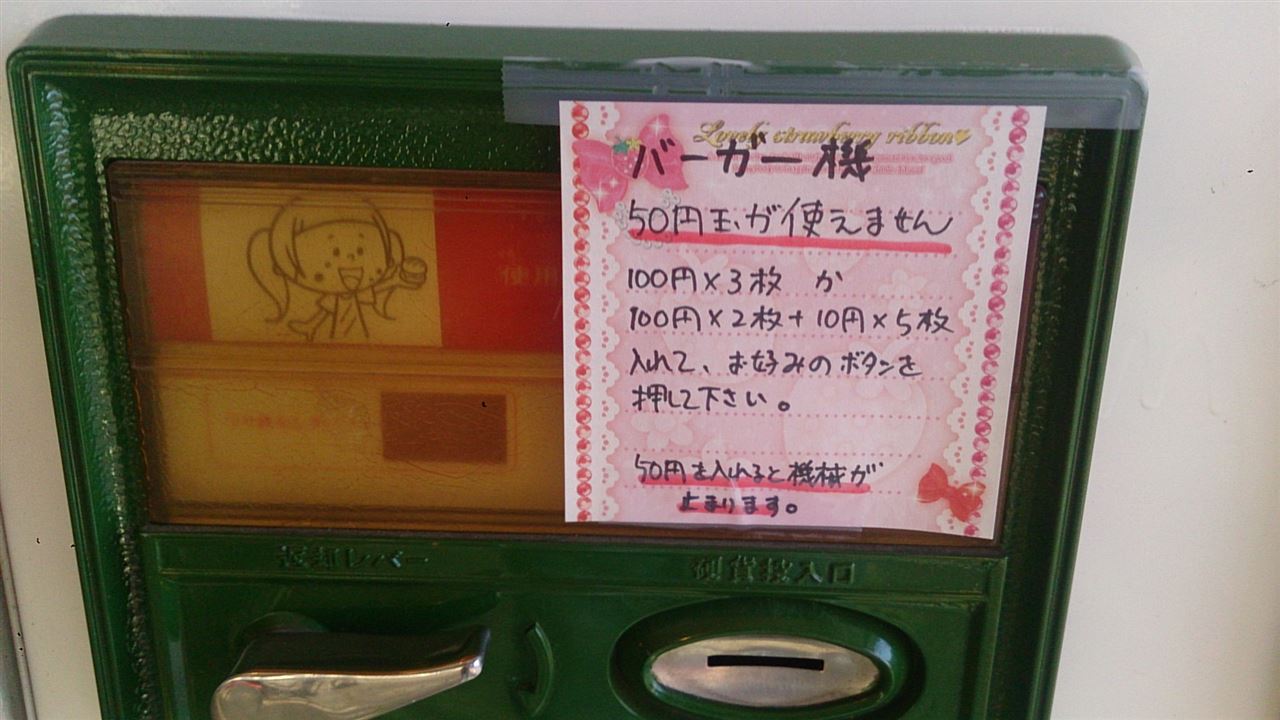 Lovely strawberry ribbon
バーガー機
50円玉が使えません
100円×3枚 か
100円×2枚+10円×5枚
入れて、お好みのボタンを
押して下さい。
50円を入れると機械が
止まります。
使用
返却レバー
硬貨投入口